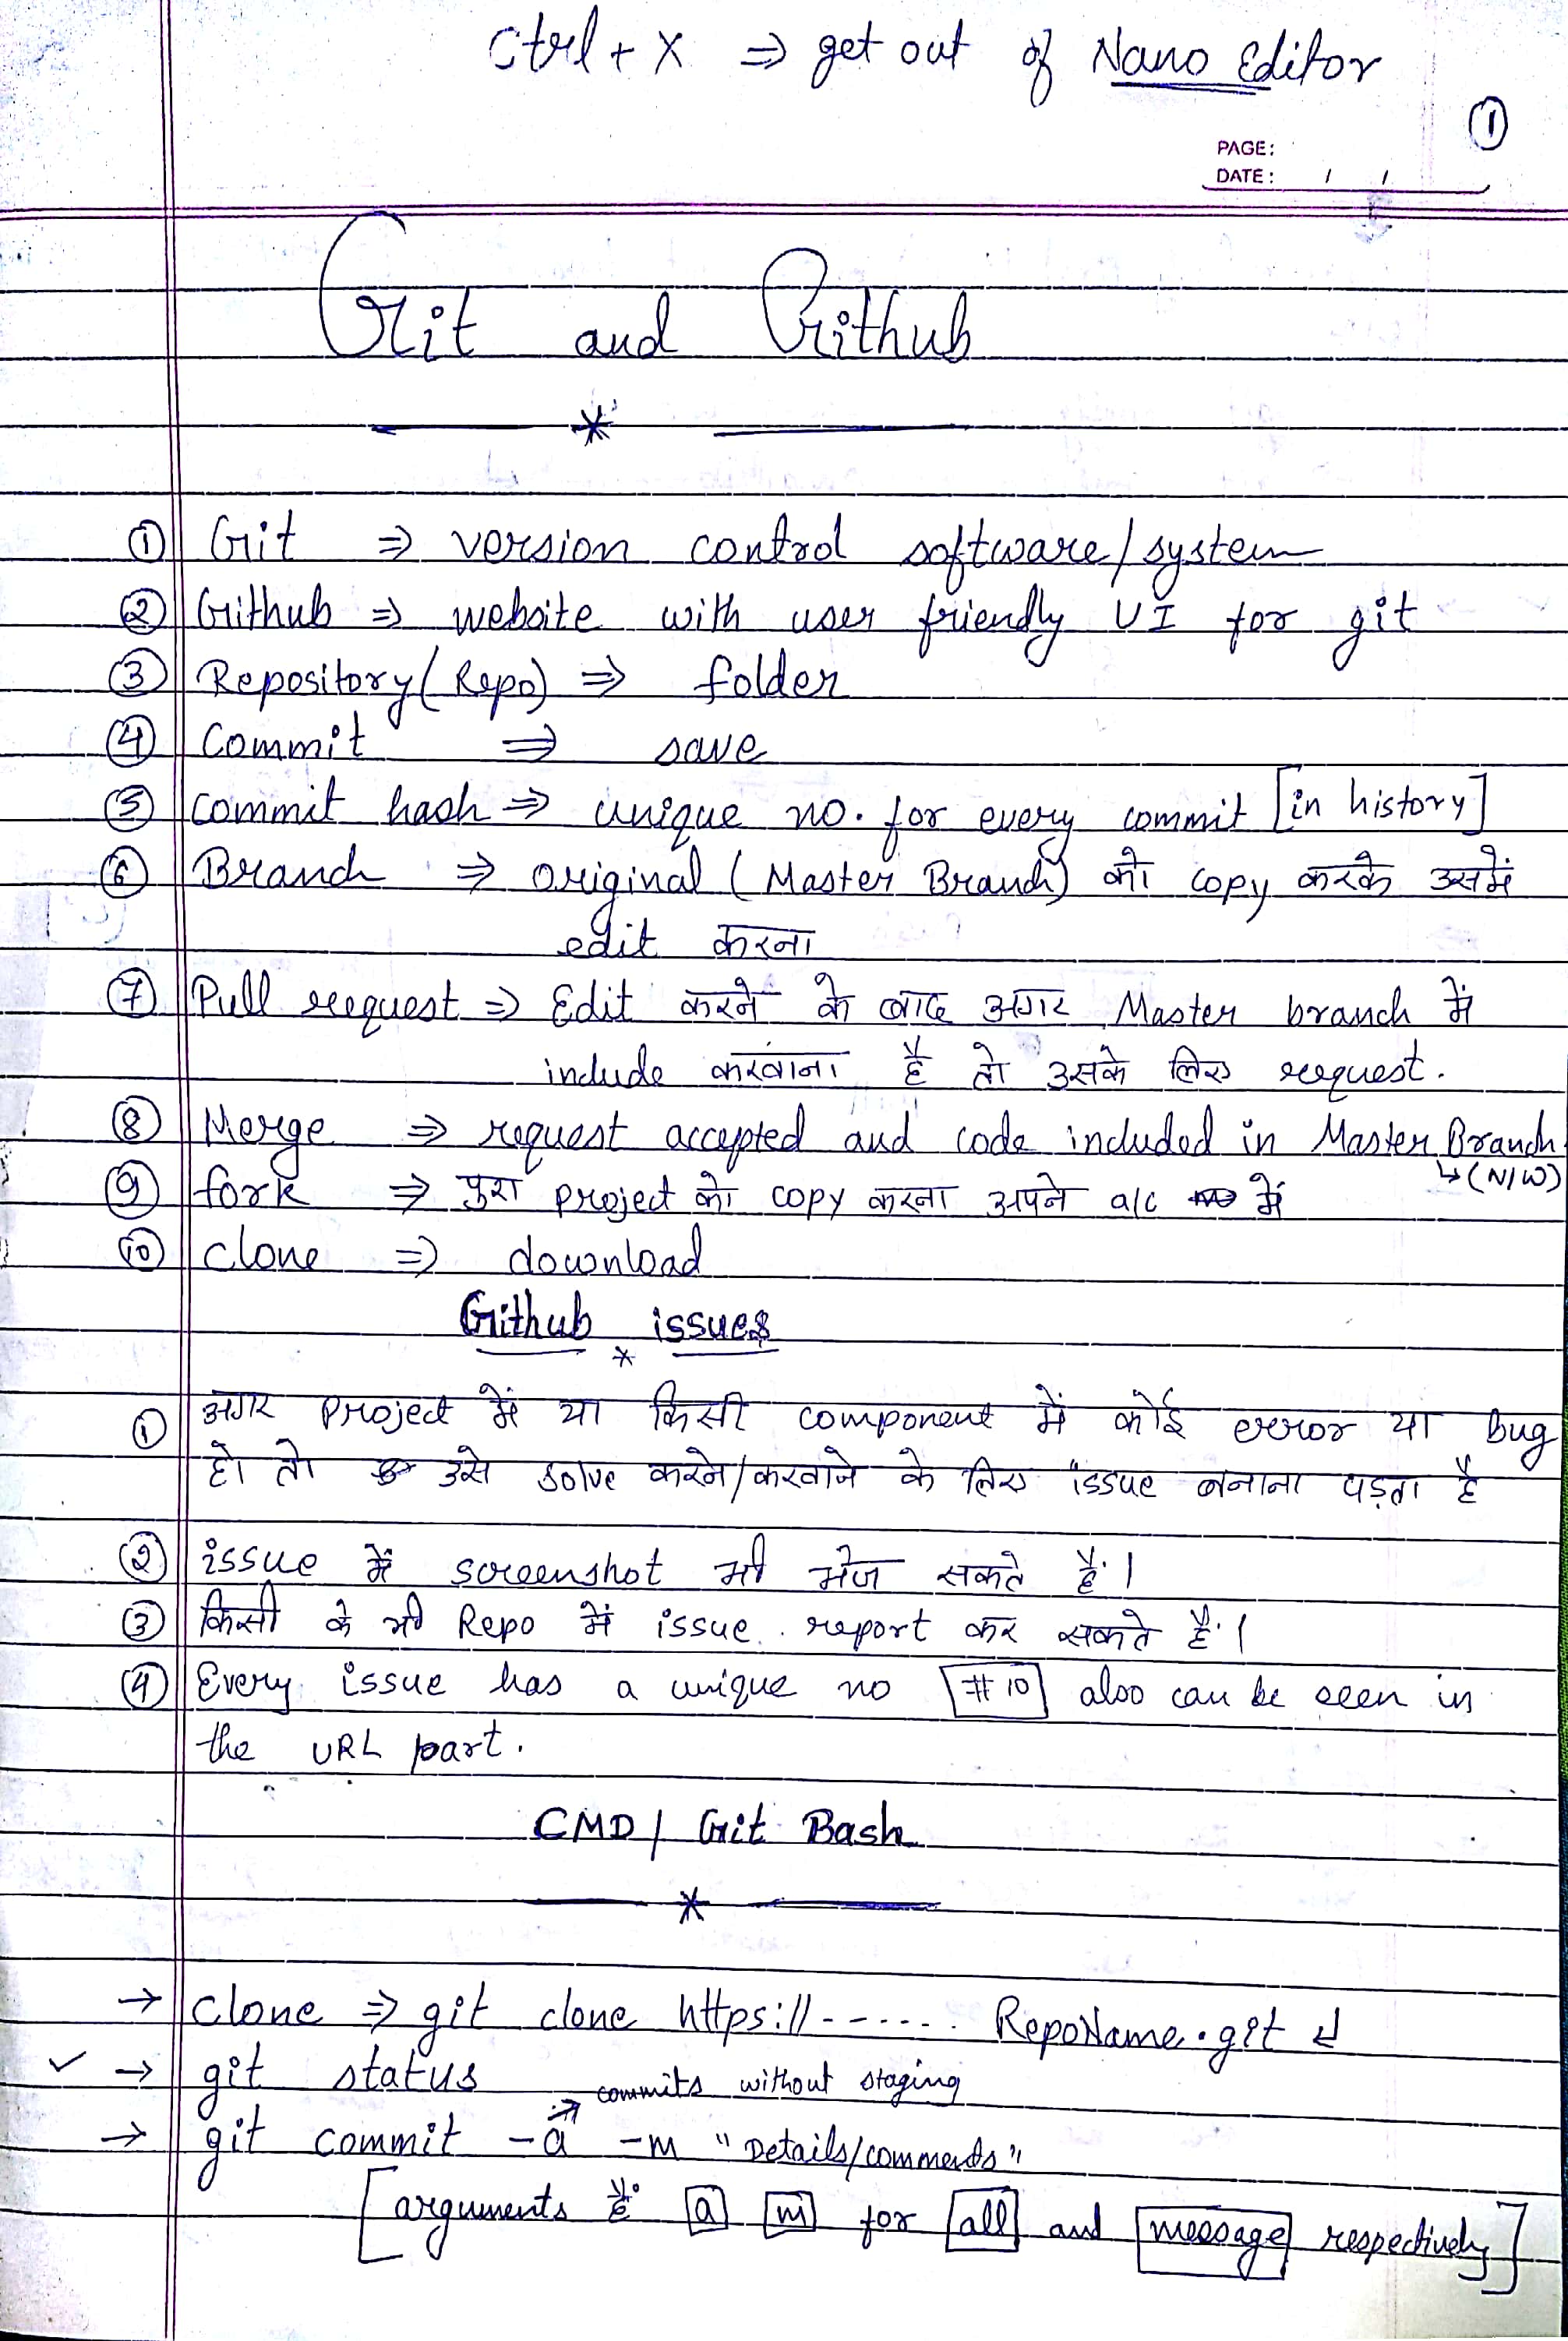 Ctrl + X ⇒ get out of Nano Editor
①
PAGE:
DATE: / /
Git and Github
*
① Git ⇒ version control software/system
② Github ⇒ website with user friendly UI for git
③ Repository (Repo) ⇒ folder
④ Commit ⇒ save
⑤ commit hash ⇒ unique no. for every commit [in history]
⑥ Branch ⇒ original (Master Branch) को copy करके उसमें
edit करना
⑦ Pull request ⇒ Edit करने के बाद अगर Master branch में
include करवाना है तो उसके लिए request.
⑧ Merge ⇒ request accepted and code included in Master Branch
↳ (N/W)
⑨ fork ⇒ पुरा project को copy करना अपने a/c में
⑩ clone ⇒ download
Github issues
*
① अगर project में या किसी component में कोई error या bug
हो तो उसे solve करने/करवाने के लिए issue बनाना पड़ता है
② issue में screenshot भी भेज सकते हैं।
③ किसी के भी Repo में issue report कर सकते हैं।
④ Every issue has a unique no #10 also can be seen in
the URL part.
CMD / Git Bash
*
→ clone ⇒ git clone https://------. RepoName.git ↵
✓ → git status
→ commits without staging
→ git commit -a -m "Details/comments"
[arguments हैं a m for all and message respectively]